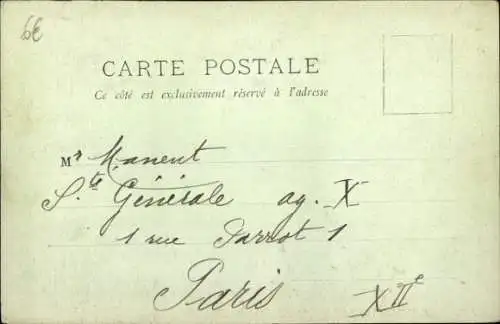 6€
CARTE POSTALE
Ce côté est exclusivement réservé à l'adresse
Mr Manent
Sté Générale ag. X
1 rue Parrot 1
Paris XIIe